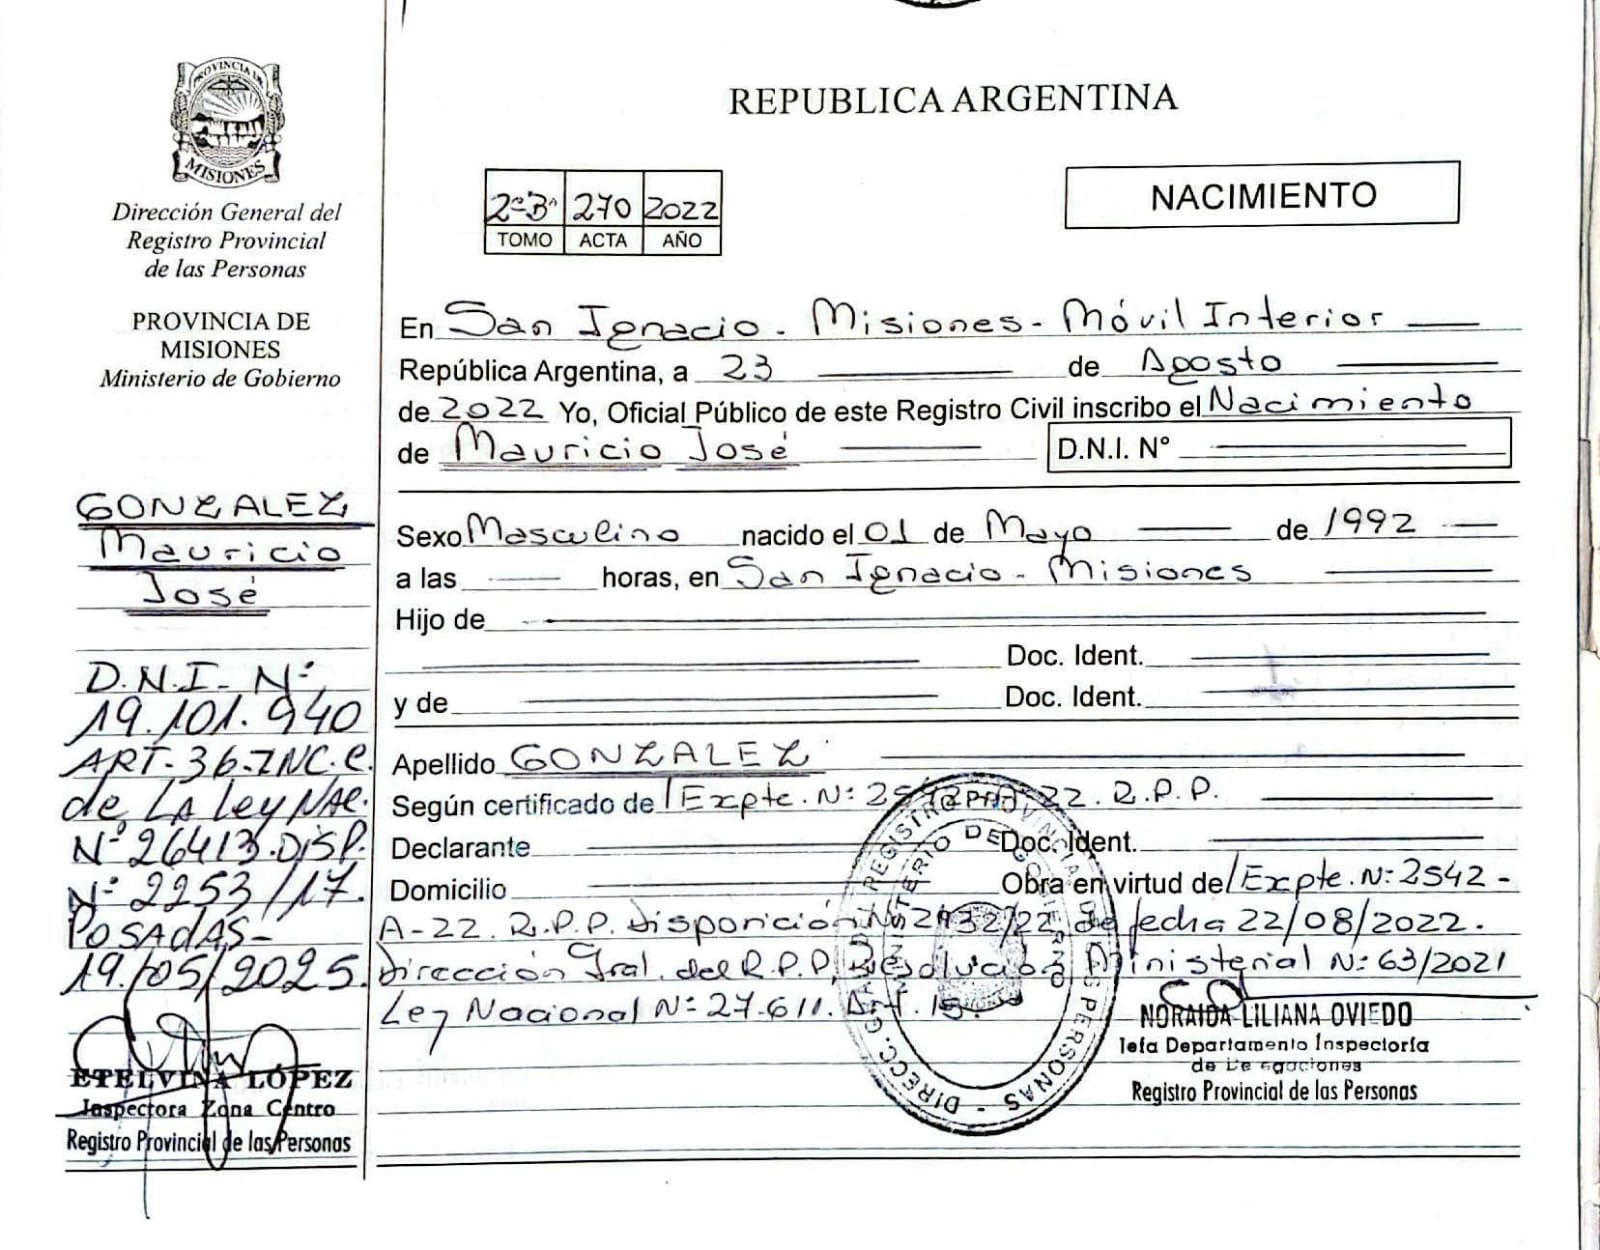 PROVINCIA DE
MISIONES
Dirección General del
Registro Provincial
de las Personas
PROVINCIA DE
MISIONES
Ministerio de Gobierno
GONZALEZ
Mauricio
José
D.N.I. Nº
19.101.940
ART. 36. INC. C.
de LA Ley NAC.
Nº 26413. DISP.
Nº 2253/17.
POSADAS-
19/05/2025.
ETELVINA LÓPEZ
Inspectora Zona Centro
Registro Provincial de las Personas
REPUBLICA ARGENTINA
2º Bº 270 2022
TOMO ACTA AÑO
NACIMIENTO
En San Ignacio - Misiones - Móvil Interior
República Argentina, a 23 de Agosto
de 2022 Yo, Oficial Público de este Registro Civil inscribo el Nacimiento
de Mauricio José D.N.I. N°
Sexo Masculino nacido el 01 de Mayo de 1992
a las horas, en San Ignacio - Misiones
Hijo de
Doc. Ident.
y de Doc. Ident.
Apellido GONZALEZ
Según certificado de Expte. Nº 22. R.P.P.
Declarante Doc. Ident.
Domicilio Obra en virtud de Expte. Nº 2542-
A-22. R.P.P. Disposición Nº /22 de fecha 22/08/2022.
Dirección Gral. del R.P.P. Resolución Ministerial Nº 63/2021
Ley Nacional Nº 27.611. Art. 15.
DIRECC. GRAL. DEL REGISTRO PROVINCIAL DE LAS PERSONAS -
MINISTERIO DE GOBIERNO
NORAIDA LILIANA OVIEDO
Jefa Departamento Inspectoría
de Delegaciones
Registro Provincial de las Personas